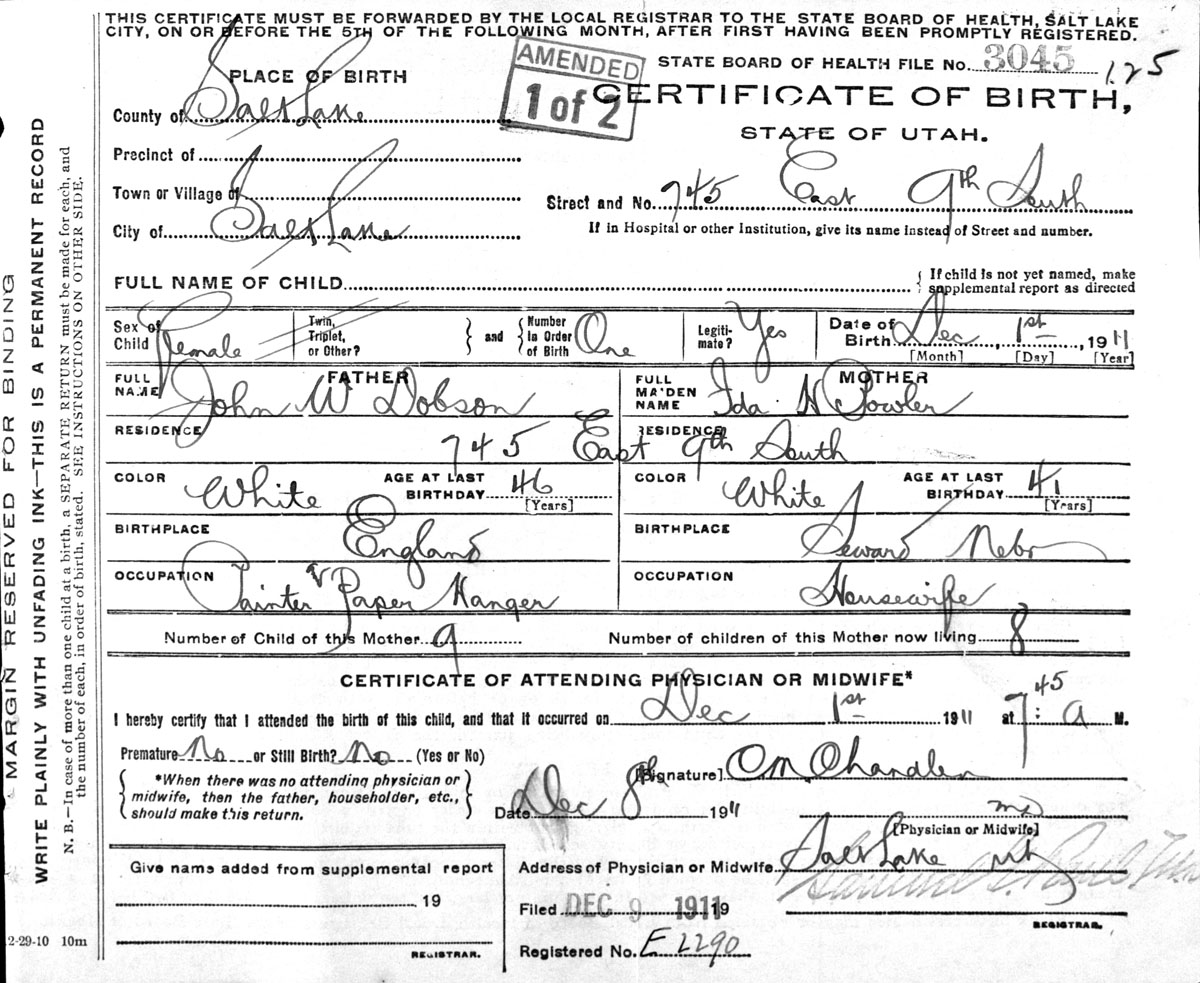 THIS CERTIFICATE MUST BE FORWARDED BY THE LOCAL REGISTRAR TO THE STATE BOARD OF HEALTH, SALT LAKE
CITY, ON OR BEFORE THE 5TH OF THE FOLLOWING MONTH, AFTER FIRST HAVING BEEN PROMPTLY REGISTERED.
AMENDED
1 of 2
STATE BOARD OF HEALTH FILE No. 3045 125
PLACE OF BIRTH
CERTIFICATE OF BIRTH,
County of Salt Lake
STATE OF UTAH.
Precinct of
Town or Village of
Street and No. 745 East 9th South
City of Salt Lake
If in Hospital or other Institution, give its name instead of Street and number.
FULL NAME OF CHILD
If child is not yet named, make
supplemental report as directed
Sex of Child Female
Twin, Triplet, or Other?
and Number in Order of Birth One
Legitimate? Yes
Date of Birth Dec 1st, 1911
[Month] [Day] [Year]
FATHER
FULL NAME John W Dobson
MOTHER
FULL MAIDEN NAME Ida H Fowler
RESIDENCE RESIDENCE
745 East 9th South
COLOR White AGE AT LAST BIRTHDAY 46 [Years]
COLOR White AGE AT LAST BIRTHDAY 41 [Years]
BIRTHPLACE England
BIRTHPLACE Seward Nebr
OCCUPATION Painter & Paper Hanger
OCCUPATION Housewife
Number of Child of this Mother 9 Number of children of this Mother now living 8
CERTIFICATE OF ATTENDING PHYSICIAN OR MIDWIFE*
I hereby certify that I attended the birth of this child, and that it occurred on Dec 1st 1911 at 7:45 a M.
Premature No or Still Birth? No (Yes or No)
*When there was no attending physician or
midwife, then the father, householder, etc.,
should make this return.
[Signature] C M Chandler
Date Dec 8th 1911
MD
[Physician or Midwife]
Address of Physician or Midwife Salt Lake Ut
Give name added from supplemental report
19
REGISTRAR.
Filed DEC 9 1911 19
REGISTRAR.
Registered No. E 2290
2-29-10 10m
MARGIN RESERVED FOR BINDING
WRITE PLAINLY WITH UNFADING INK—THIS IS A PERMANENT RECORD
N. B.—In case of more than one child at a birth, a SEPARATE RETURN must be made for each, and
the number of each, in order of birth, stated. SEE INSTRUCTIONS ON OTHER SIDE.